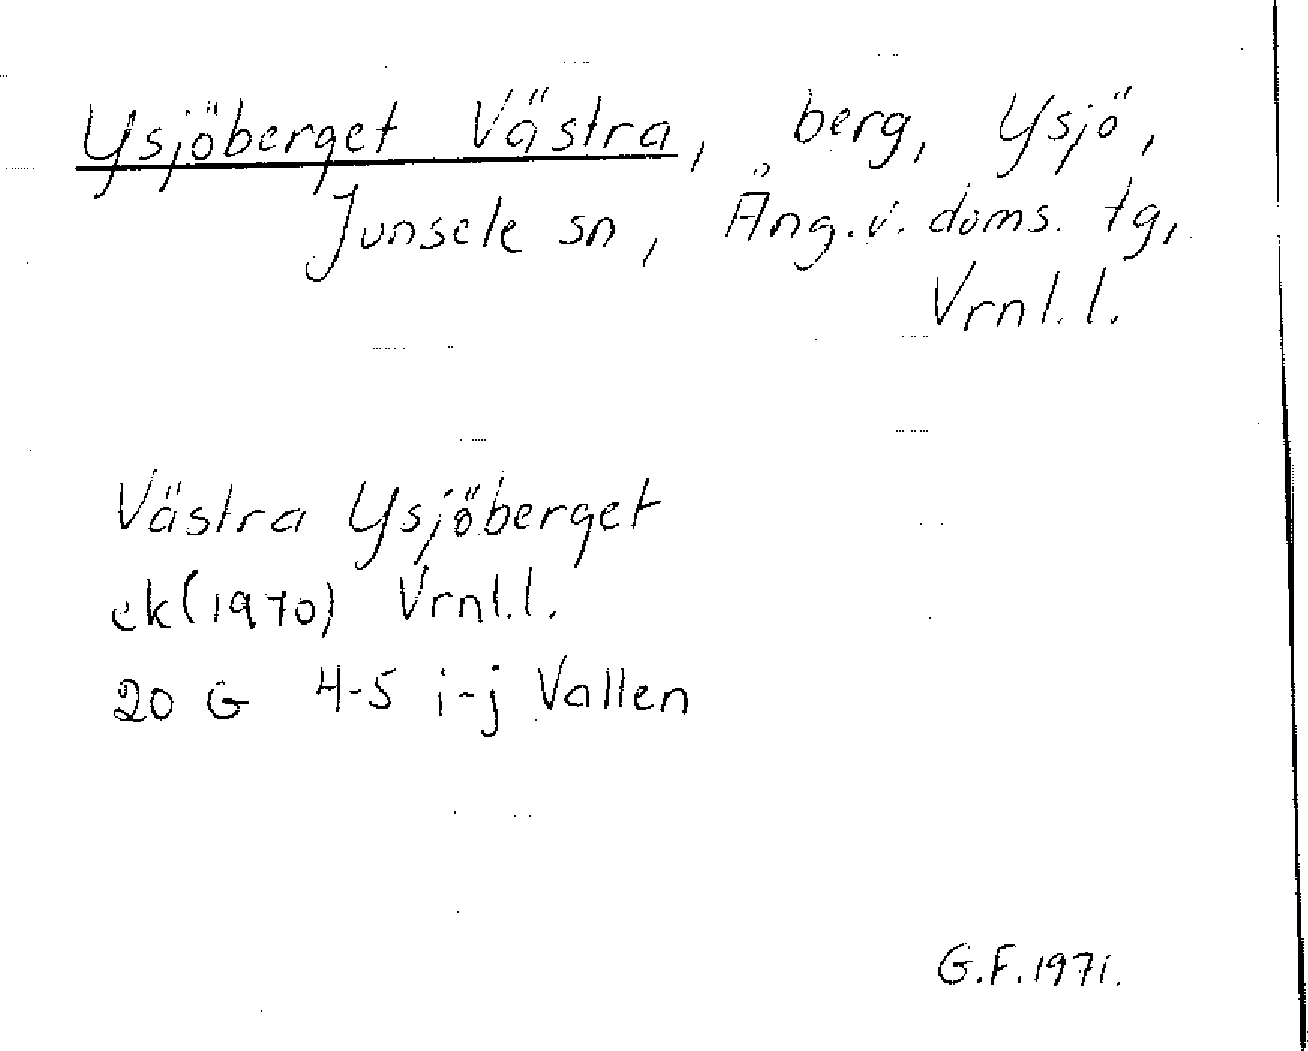 Ysjöberget Västra, berg, Ysjö,
Junsele sn, Ång.v. doms. tg,
Vrnl.l.
Västra Ysjöberget
ek(1970) Vrnl.l.
20 G 4-5 i-j Vallen
G.F.1971.